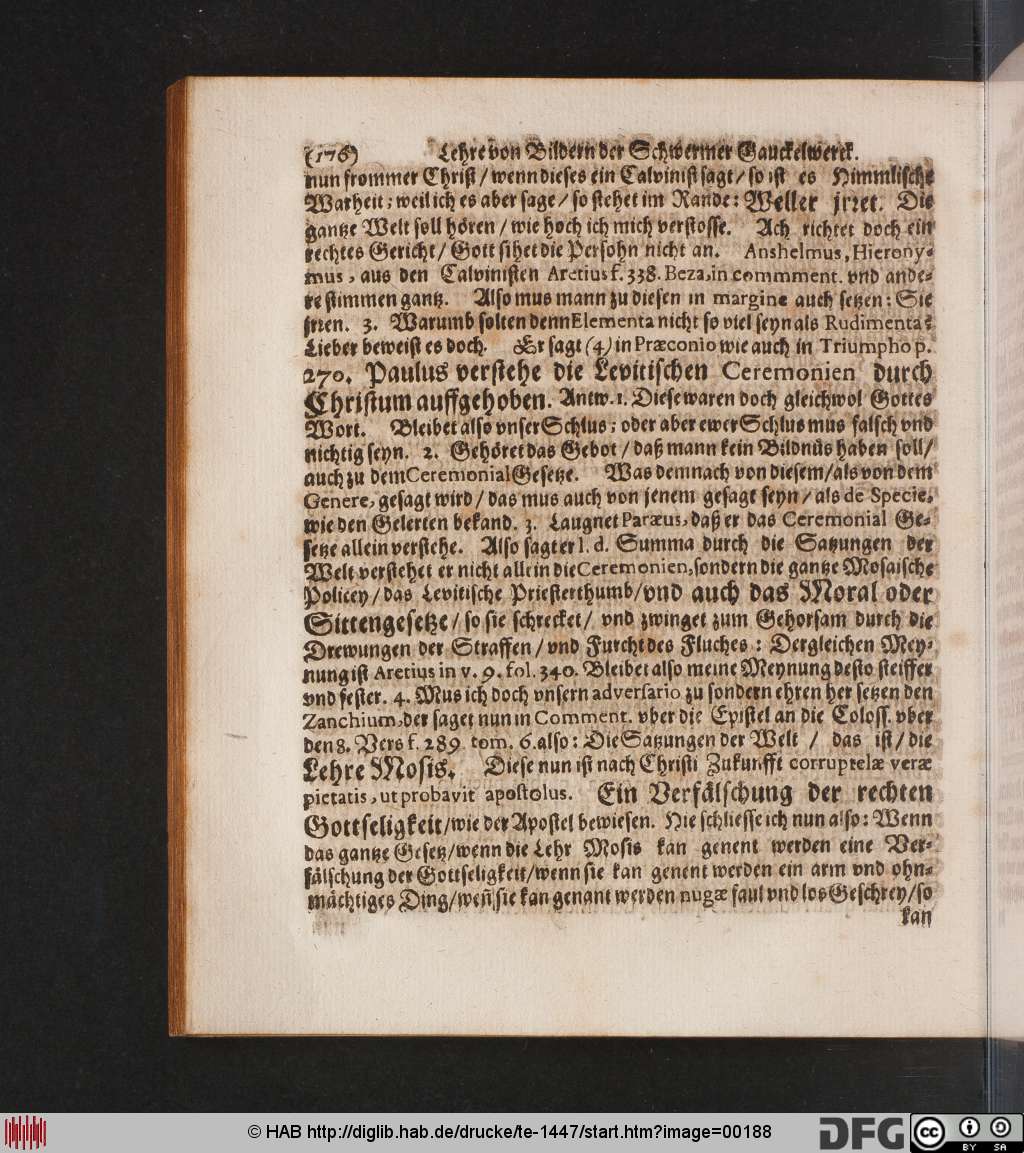 (176) Lehre von Bildern der Schwermer Gauckelwerck.
nun frommer Christ / wenn dieses ein Calvinist sagt / so ist es Himmlische
Warheit; weil ich es aber sage / so stehet im Rande: Weller jrret. Die
gantze Welt soll hören / wie hoch ich mich verstosse. Ach richtet doch ein
rechtes Gericht / Gott sihet die Persohn nicht an. Anshelmus, Hierony-
mus, aus den Calvinisten Aretius f. 338. Beza, in commment. vnd ande-
re stimmen gantz. Also mus mann zu diesen in margine auch setzen: Sie
jrren. 3. Warumb solten denn Elementa nicht so viel seyn als Rudimenta?
Lieber beweist es doch. Er sagt (4) in Præconio wie auch in Triumpho p.
270. Paulus verstehe die Levitischen Ceremonien durch
Christum auffgehoben. Antw. 1. Diese waren doch gleichwol Gottes
Wort. Bleibet also vnser Schlus; oder aber ewer Schlus mus falsch vnd
nichtig seyn. 2. Gehöret das Gebot / daß mann kein Bildnüs haben soll /
auch zu dem Ceremonial Gesetze. Was demnach von diesem / als von dem
Genere, gesagt wird / das mus auch von jenem gesagt seyn / als de Specie,
wie den Gelerten bekand. 3. Laugnet Paræus, daß er das Ceremonial Ge-
setze allein verstehe. Also sagt er l. d. Summa durch die Satzungen der
Welt verstehet er nicht allein die Ceremonien, sondern die gantze Mosaische
Policey / das Levitische Priesterthumb / vnd auch das Moral oder
Sittengesetze / so sie schrecket / vnd zwinget zum Gehorsam durch die
Drewungen der Straffen / vnd Furcht des Fluches: Dergleichen Mey-
nung ist Aretius in v. 9. fol. 340. Bleibet also meine Meynung desto steiffer
vnd fester. 4. Mus ich doch vnsern adversario zu sondern ehren her setzen den
Zanchium, der saget nun in Comment. vber die Epistel an die Coloss. vber
den 8. Vers f. 289. tom. 6. also: Die Satzungen der Welt / das ist / die
Lehre Mosis. Diese nun ist nach Christi Zukunfft corruptelæ veræ
pietatis, ut probavit apostolus. Ein Verfälschung der rechten
Gottseligkeit / wie der Apostel bewiesen. Hie schliesse ich nun also: Wenn
das gantze Gesetz / wenn die Lehr Mosis kan genent werden eine Ver-
fälschung der Gottseligkeit / wenn sie kan genent werden ein arm vnd ohn-
mächtiges Ding / weñ sie kan genant werden nugæ faul vnd los Geschrey / so
kan
© HAB http://diglib.hab.de/drucke/te-1447/start.htm?image=00188
DFG
cc BY SA